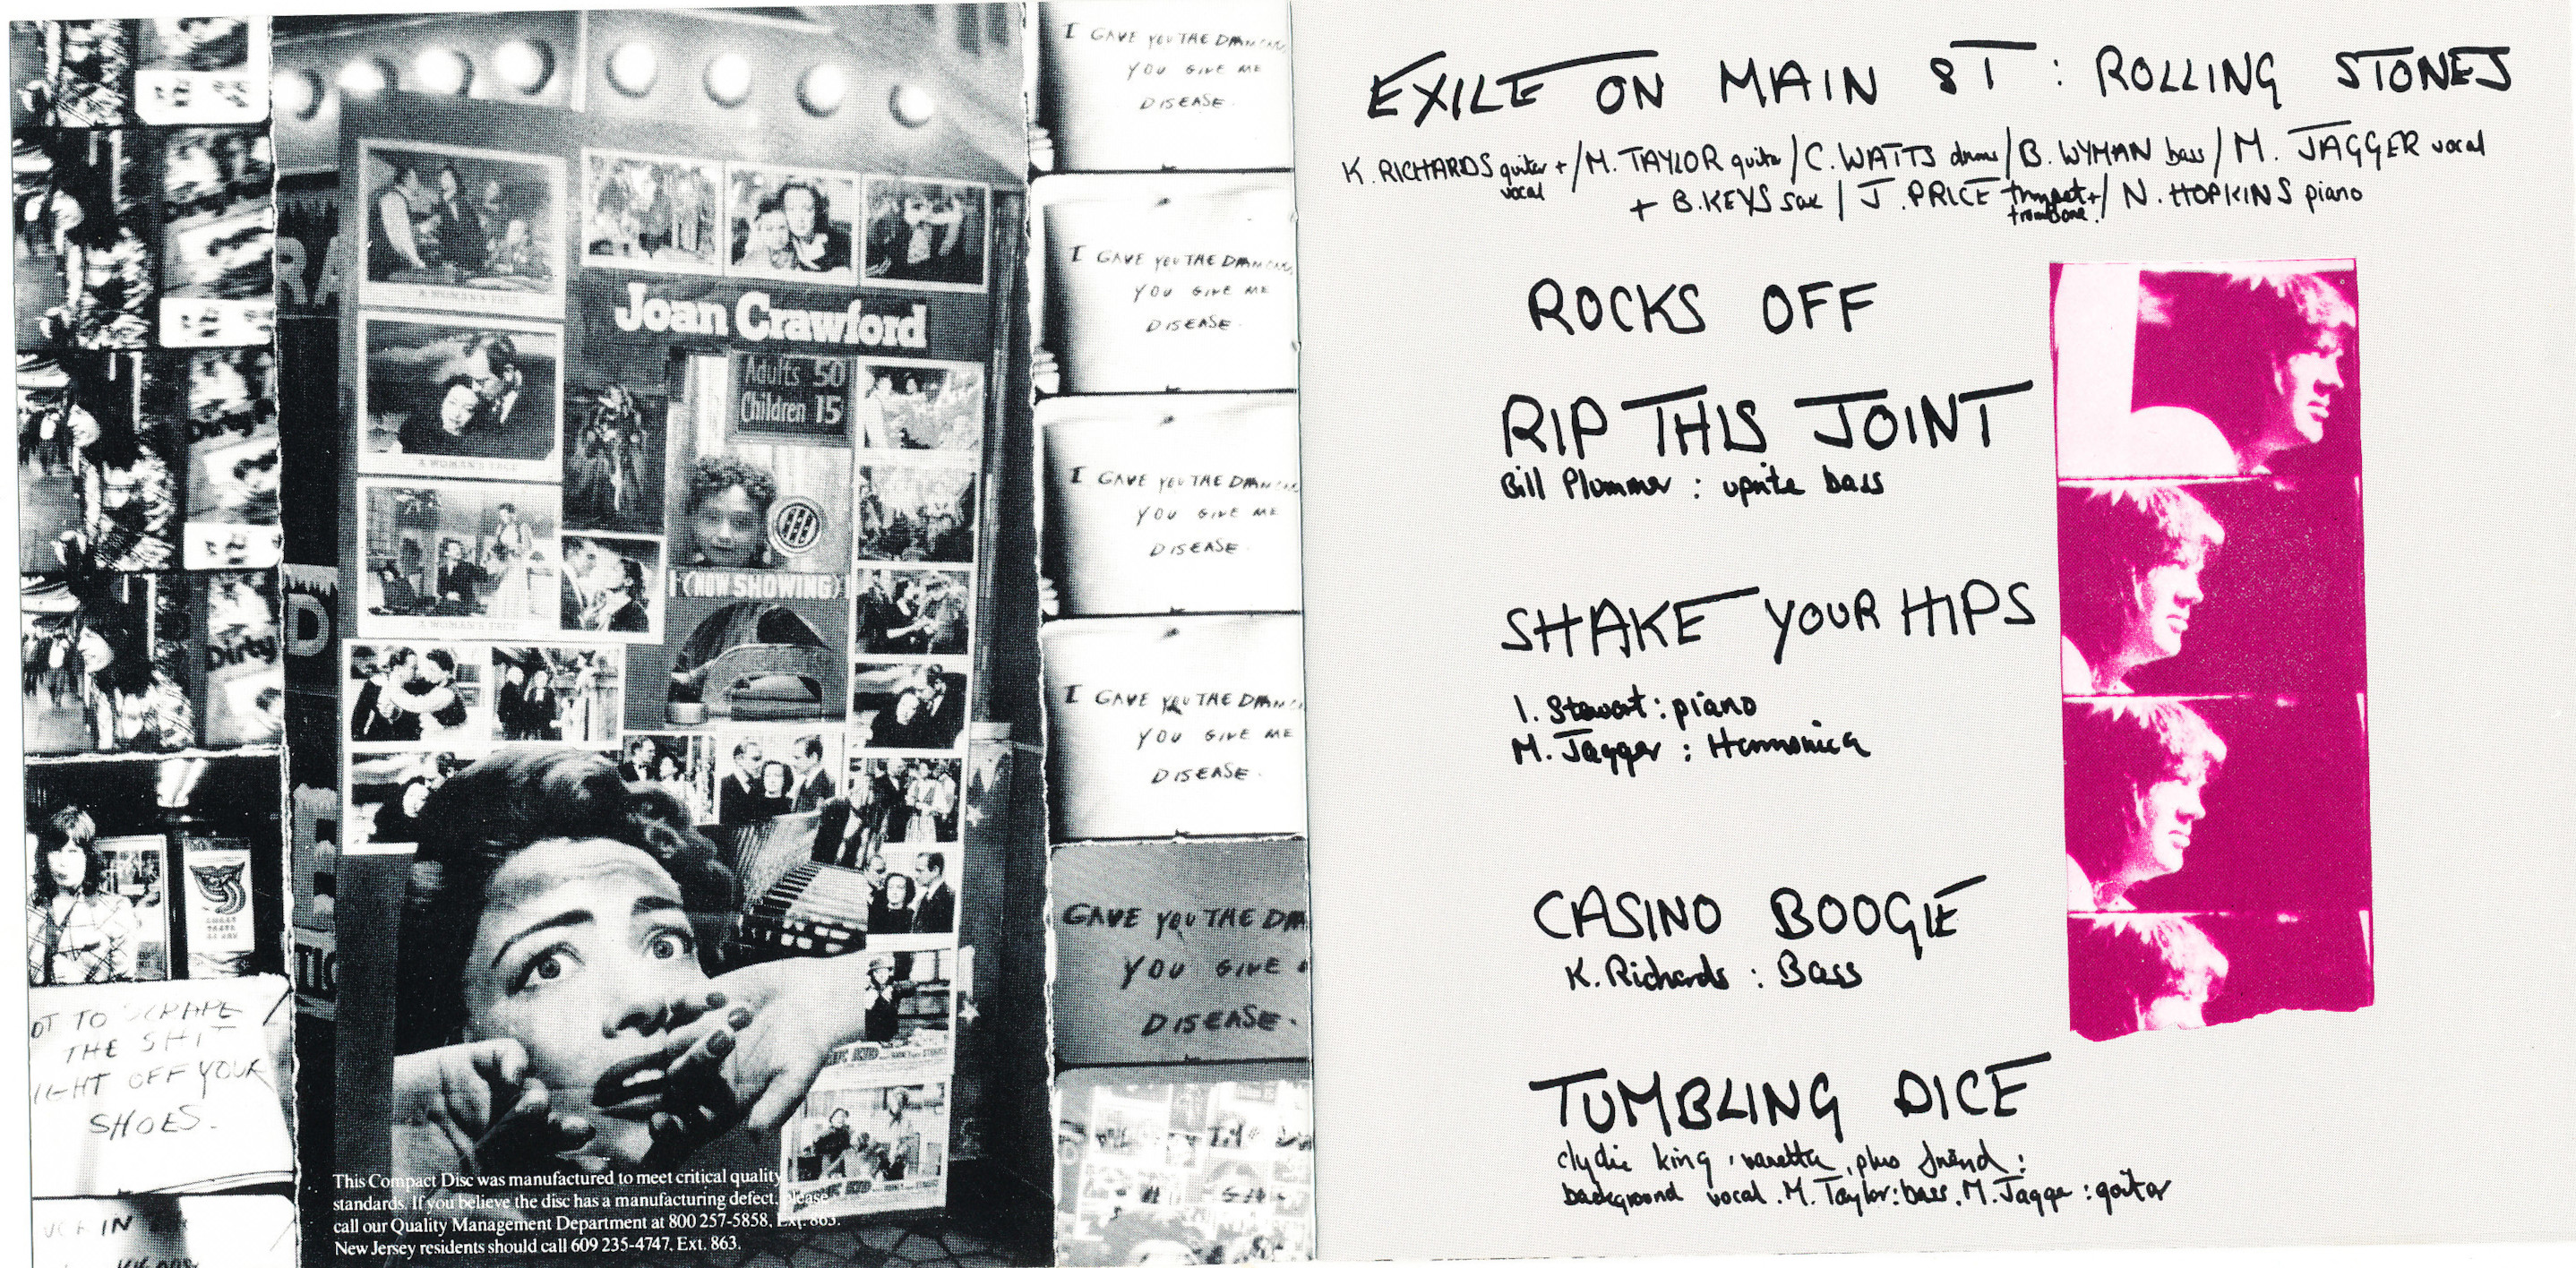 I GAVE YOU THE
YOU GIVE ME
DISEASE.
I GAVE YOU THE
YOU GIVE ME
DISEASE.
I GAVE YOU THE
YOU GIVE ME
DISEASE.
I GAVE YOU THE
YOU GIVE ME
DISEASE.
GAVE YOU THE
YOU GIVE
DISEASE.
A WOMAN'S FACE
A WOMAN'S FACE
A WOMAN'S FACE
Joan Crawford
Adults 50
Children 15
(NOW SHOWING)
Dirty
Dirty
OT TO SCRAPE
THE SHIT
IGHT OFF YOUR
SHOES.
IN
This Compact Disc was manufactured to meet critical quality
standards. If you believe the disc has a manufacturing defect, please
call our Quality Management Department at 800 257-5858, Ext. 863.
New Jersey residents should call 609 235-4747, Ext. 863.
EXILE ON MAIN ST : ROLLING STONES
K. RICHARDS guitar + vocal / M. TAYLOR guitar / C. WATTS drums / B. WYMAN bass / M. JAGGER vocal
+ B. KEYS sax / J. PRICE trumpet + trombone. / N. HOPKINS piano
ROCKS OFF
RIP THIS JOINT
Bill Plummer : uprite bass
SHAKE YOUR HIPS
I. Stewart : piano
M. Jagger : Harmonica
CASINO BOOGIE
K. Richards : Bass
TUMBLING DICE
clydie king, vanetta, plus friend :
background vocal. M. Taylor : bass. M. Jagger : guitar